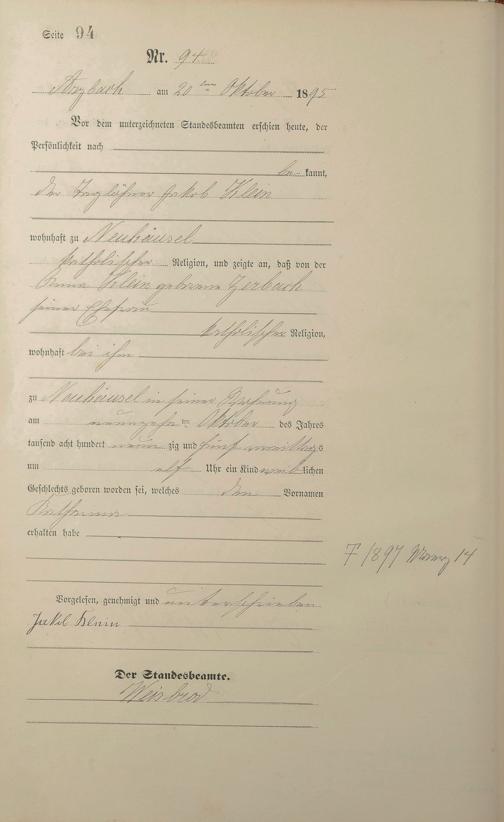 Seite 94
Nr. 94
Arzbach am 20ten Oktober 1895
Vor dem unterzeichneten Standesbeamten erschien heute, der
Persönlichkeit nach
be kannt,
der Taglöhner Jakob Klein
wohnhaft zu Neuhäusel
katholischer Religion, und zeigte an, daß von der
Anna Klein geborene Zerbach
seiner Ehefrau
katholischer Religion,
wohnhaft bei ihm
zu Neuhäusel in seiner Wohnung
am neunzehnten Oktober des Jahres
tausend acht hundert neun zig und fünf vormittags
um elf Uhr ein Kind weib lichen
Geschlechts geboren worden sei, welches den Vornamen
Katharina
erhalten habe
† 1897 14
Vorgelesen, genehmigt und unterschrieben
Jakob Klein
Der Standesbeamte.
Weisbrod